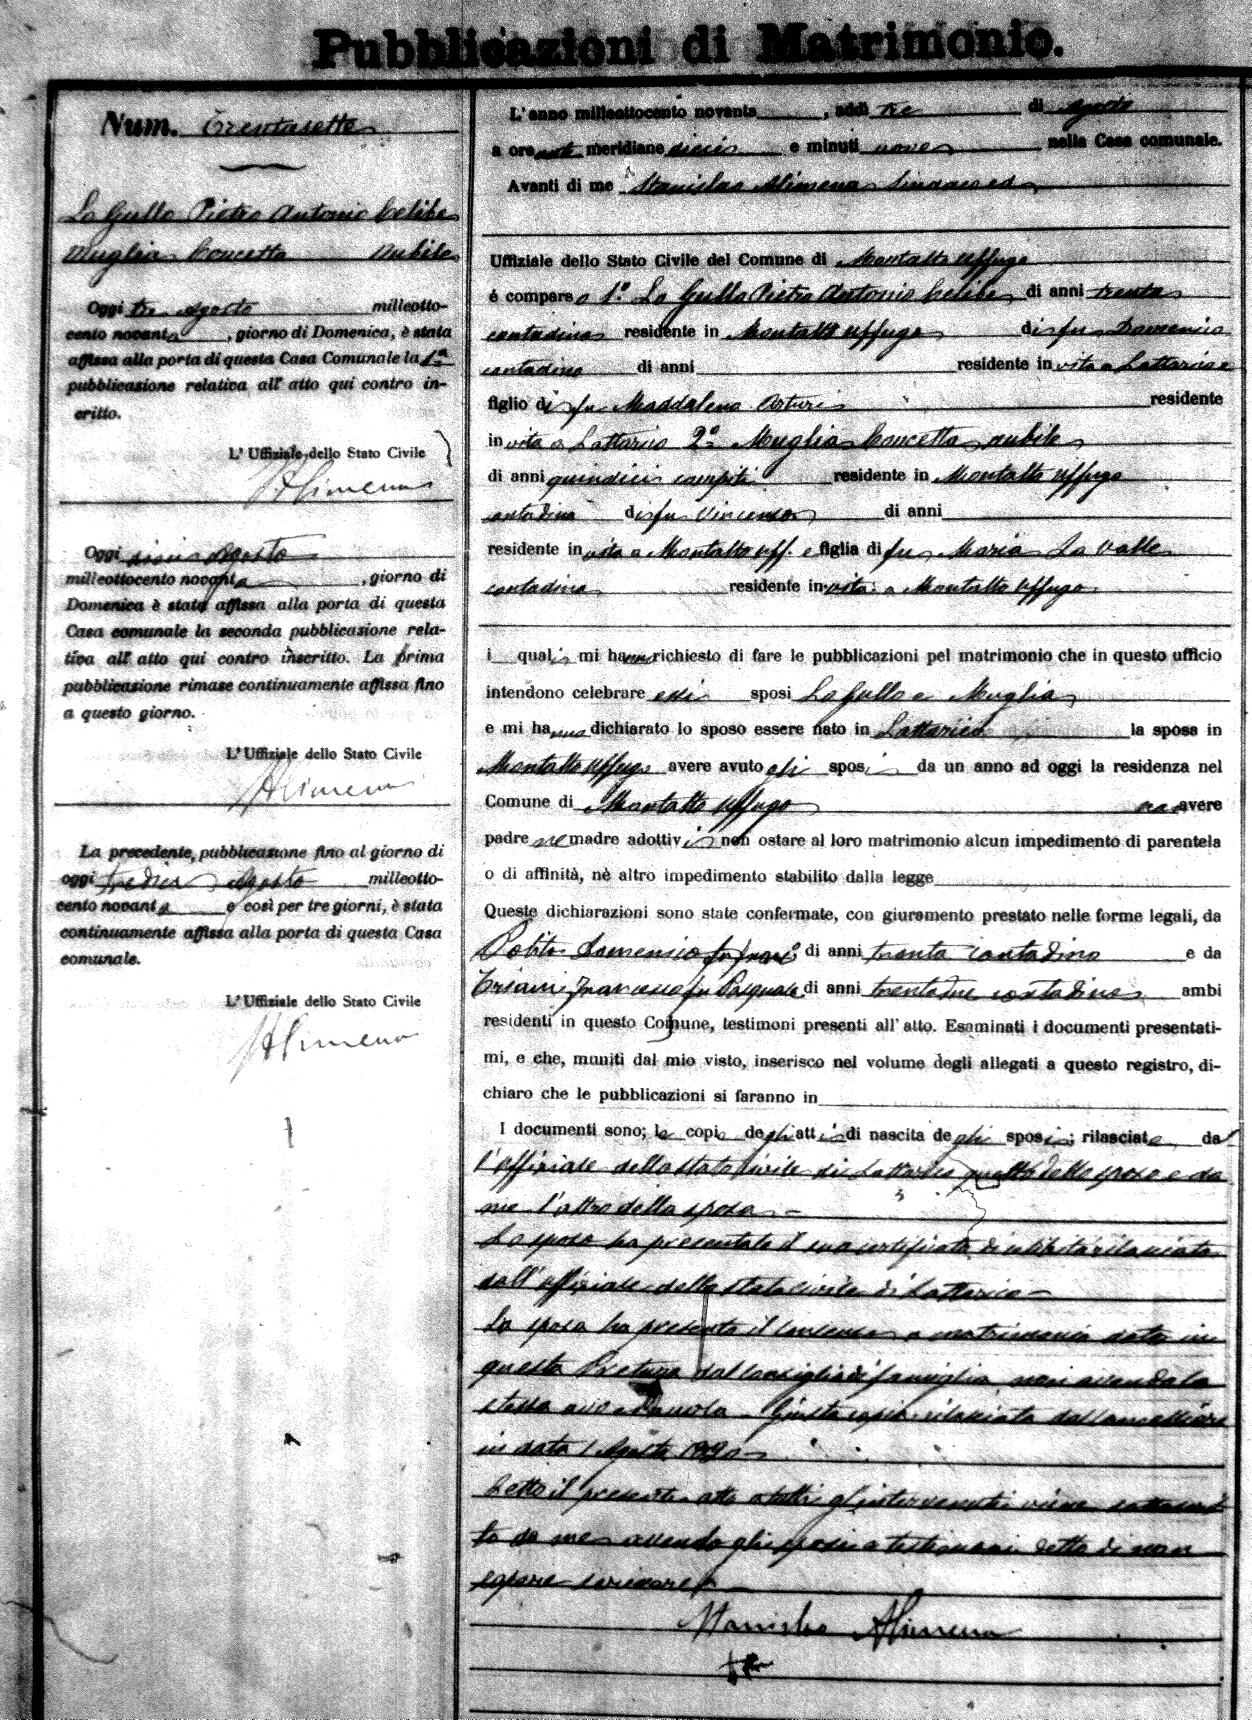 Pubblicazioni di Matrimonio.
Num. Trentasette
Lo Gullo Pietro Antonio Celibe
Muglia Concetta nubile
Oggi tre agosto milleotto-
cento novanta, giorno di Domenica, è stata
affissa alla porta di questa Casa Comunale la 1a
pubblicazione relativa all' atto qui contro in-
scritto.
L' Uffiziale dello Stato Civile
SAlimena
Oggi dieci Agosto
milleottocento novanta, giorno di
Domenica è stata affissa alla porta di questa
Casa comunale la seconda pubblicazione rela-
tiva all' atto qui contro inscritto. La prima
pubblicazione rimase continuamente affissa fino
a questo giorno.
L' Uffiziale dello Stato Civile
SAlimena
La precedente pubblicazione fino al giorno di
oggi tredici Agosto milleotto-
cento novanta e così per tre giorni, è stata
continuamente affissa alla porta di questa Casa
comunale.
L' Uffiziale dello Stato Civile
SAlimena
L' anno milleottocento novanta, addì tre di Agosto
a ore anti meridiane dieci e minuti nove nella Casa comunale.
Avanti di me Stanislao Alimena Sindaco ed
Uffiziale dello Stato Civile del Comune di Montalto Uffugo
é comparso 1.° Lo Gullo Pietro Antonio Celibe di anni trenta
contadino residente in Montalto Uffugo di fu Domenico
contadino di anni residente in vita a Lattarico e
figlio di fu Maddalena Arturi residente
in vita a Lattarico 2° Muglia Concetta nubile
di anni quindici compiti residente in Montalto Uffugo
contadina di fu Vincenzo di anni
residente in vita a Montalto Uff. e figlia di fu Maria La Valle
contadina residente in vita a Montalto Uffugo
i quali mi hanno richiesto di fare le pubblicazioni pel matrimonio che in questo ufficio
intendono celebrare essi sposi Lo Gullo e Muglia
e mi hanno dichiarato lo sposo essere nato in Lattarico la sposa in
Montalto Uffugo avere avuto gli sposi da un anno ad oggi la residenza nel
Comune di Montalto Uffugo non avere
padre ne madre adottivi non ostare al loro matrimonio alcun impedimento di parentela
o di affinità, nè altro impedimento stabilito dalla legge
Queste dichiarazioni sono state confermate, con giuramento prestato nelle forme legali, da
Polito Domenico fu di anni trenta contadino e da
Francesco fu Pasquale di anni trentadue contadino ambi
residenti in questo Comune, testimoni presenti all' atto. Esaminati i documenti presentati-
mi, e che, muniti dal mio visto, inserisco nel volume degli allegati a questo registro, di-
chiaro che le pubblicazioni si faranno in
I documenti sono; le copie degli atti di nascita degli sposi; rilasciate dal
l'uffiziale dello stato civile di Lattarico quello dello sposo e da
me l'altro della sposa
Lo sposo ha presentato il suo certificato di celibità rilasciato
dall'uffiziale dello stato civile di Lattarico
La sposa ha presento il consenso a matrimonio dato in
questa Pretura dal consiglio di famiglia non avendo la
stessa avi Giusta copia rilasciata dal cancelliere
in data 1 Agosto 1890
Letto il presente atto a tutti gl'intervenuti viene sottoscrit
to da me avendo gli sposi e testimoni detto di non
sapere scrivere
Stanislao Alimena